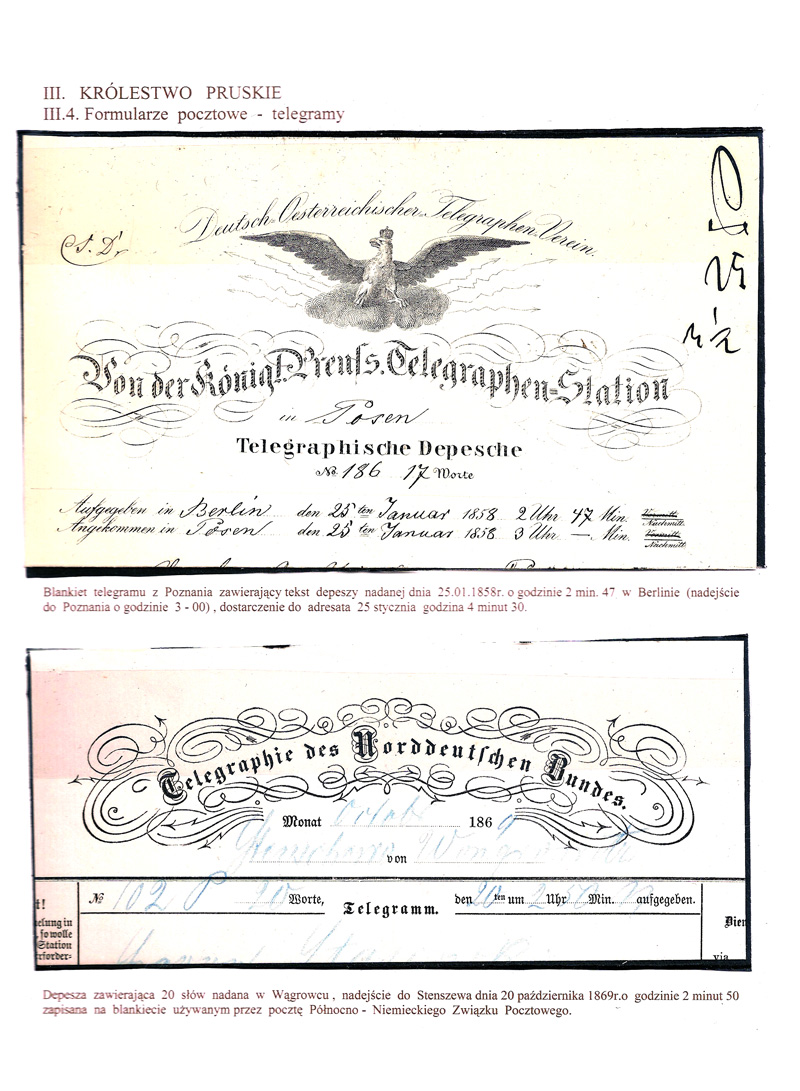 III. KRÓLESTWO PRUSKIE
III.4. Formularze pocztowe - telegramy
Deutsch-Oesterreichischer Telegraphen-Verein.
S. D.
Von der Königl. Preuſs. Telegraphen-Station
in Posen
Telegraphische Depesche
No 186 17 Worte
Aufgegeben in Berlin den 25 ten Januar 1858 2 Uhr 47 Min. Vormitt. Nachmitt.
Angekommen in Posen den 25 ten Januar 1858 3 Uhr — Min. Vormitt. Nachmitt.
Blankiet telegramu z Poznania zawierający tekst depeszy nadanej dnia 25.01.1858r. o godzinie 2 min. 47 w Berlinie (nadejście
do Poznania o godzinie 3 - 00) , dostarczenie do adresata 25 stycznia godzina 4 minut 30.
Telegraphie des Norddeutſchen Bundes.
Monat Octob 1869
von
№ 102 20 Worte, Telegramm. den 20 ten um 2 Uhr 50 Min. aufgegeben.
t!
elung in
ſo wolle
Station
rforder-
Dien
via
Depesza zawierająca 20 słów nadana w Wągrowcu , nadejście do Stenszewa dnia 20 października 1869r.o godzinie 2 minut 50
zapisana na blankiecie używanym przez pocztę Północno - Niemieckiego Związku Pocztowego.